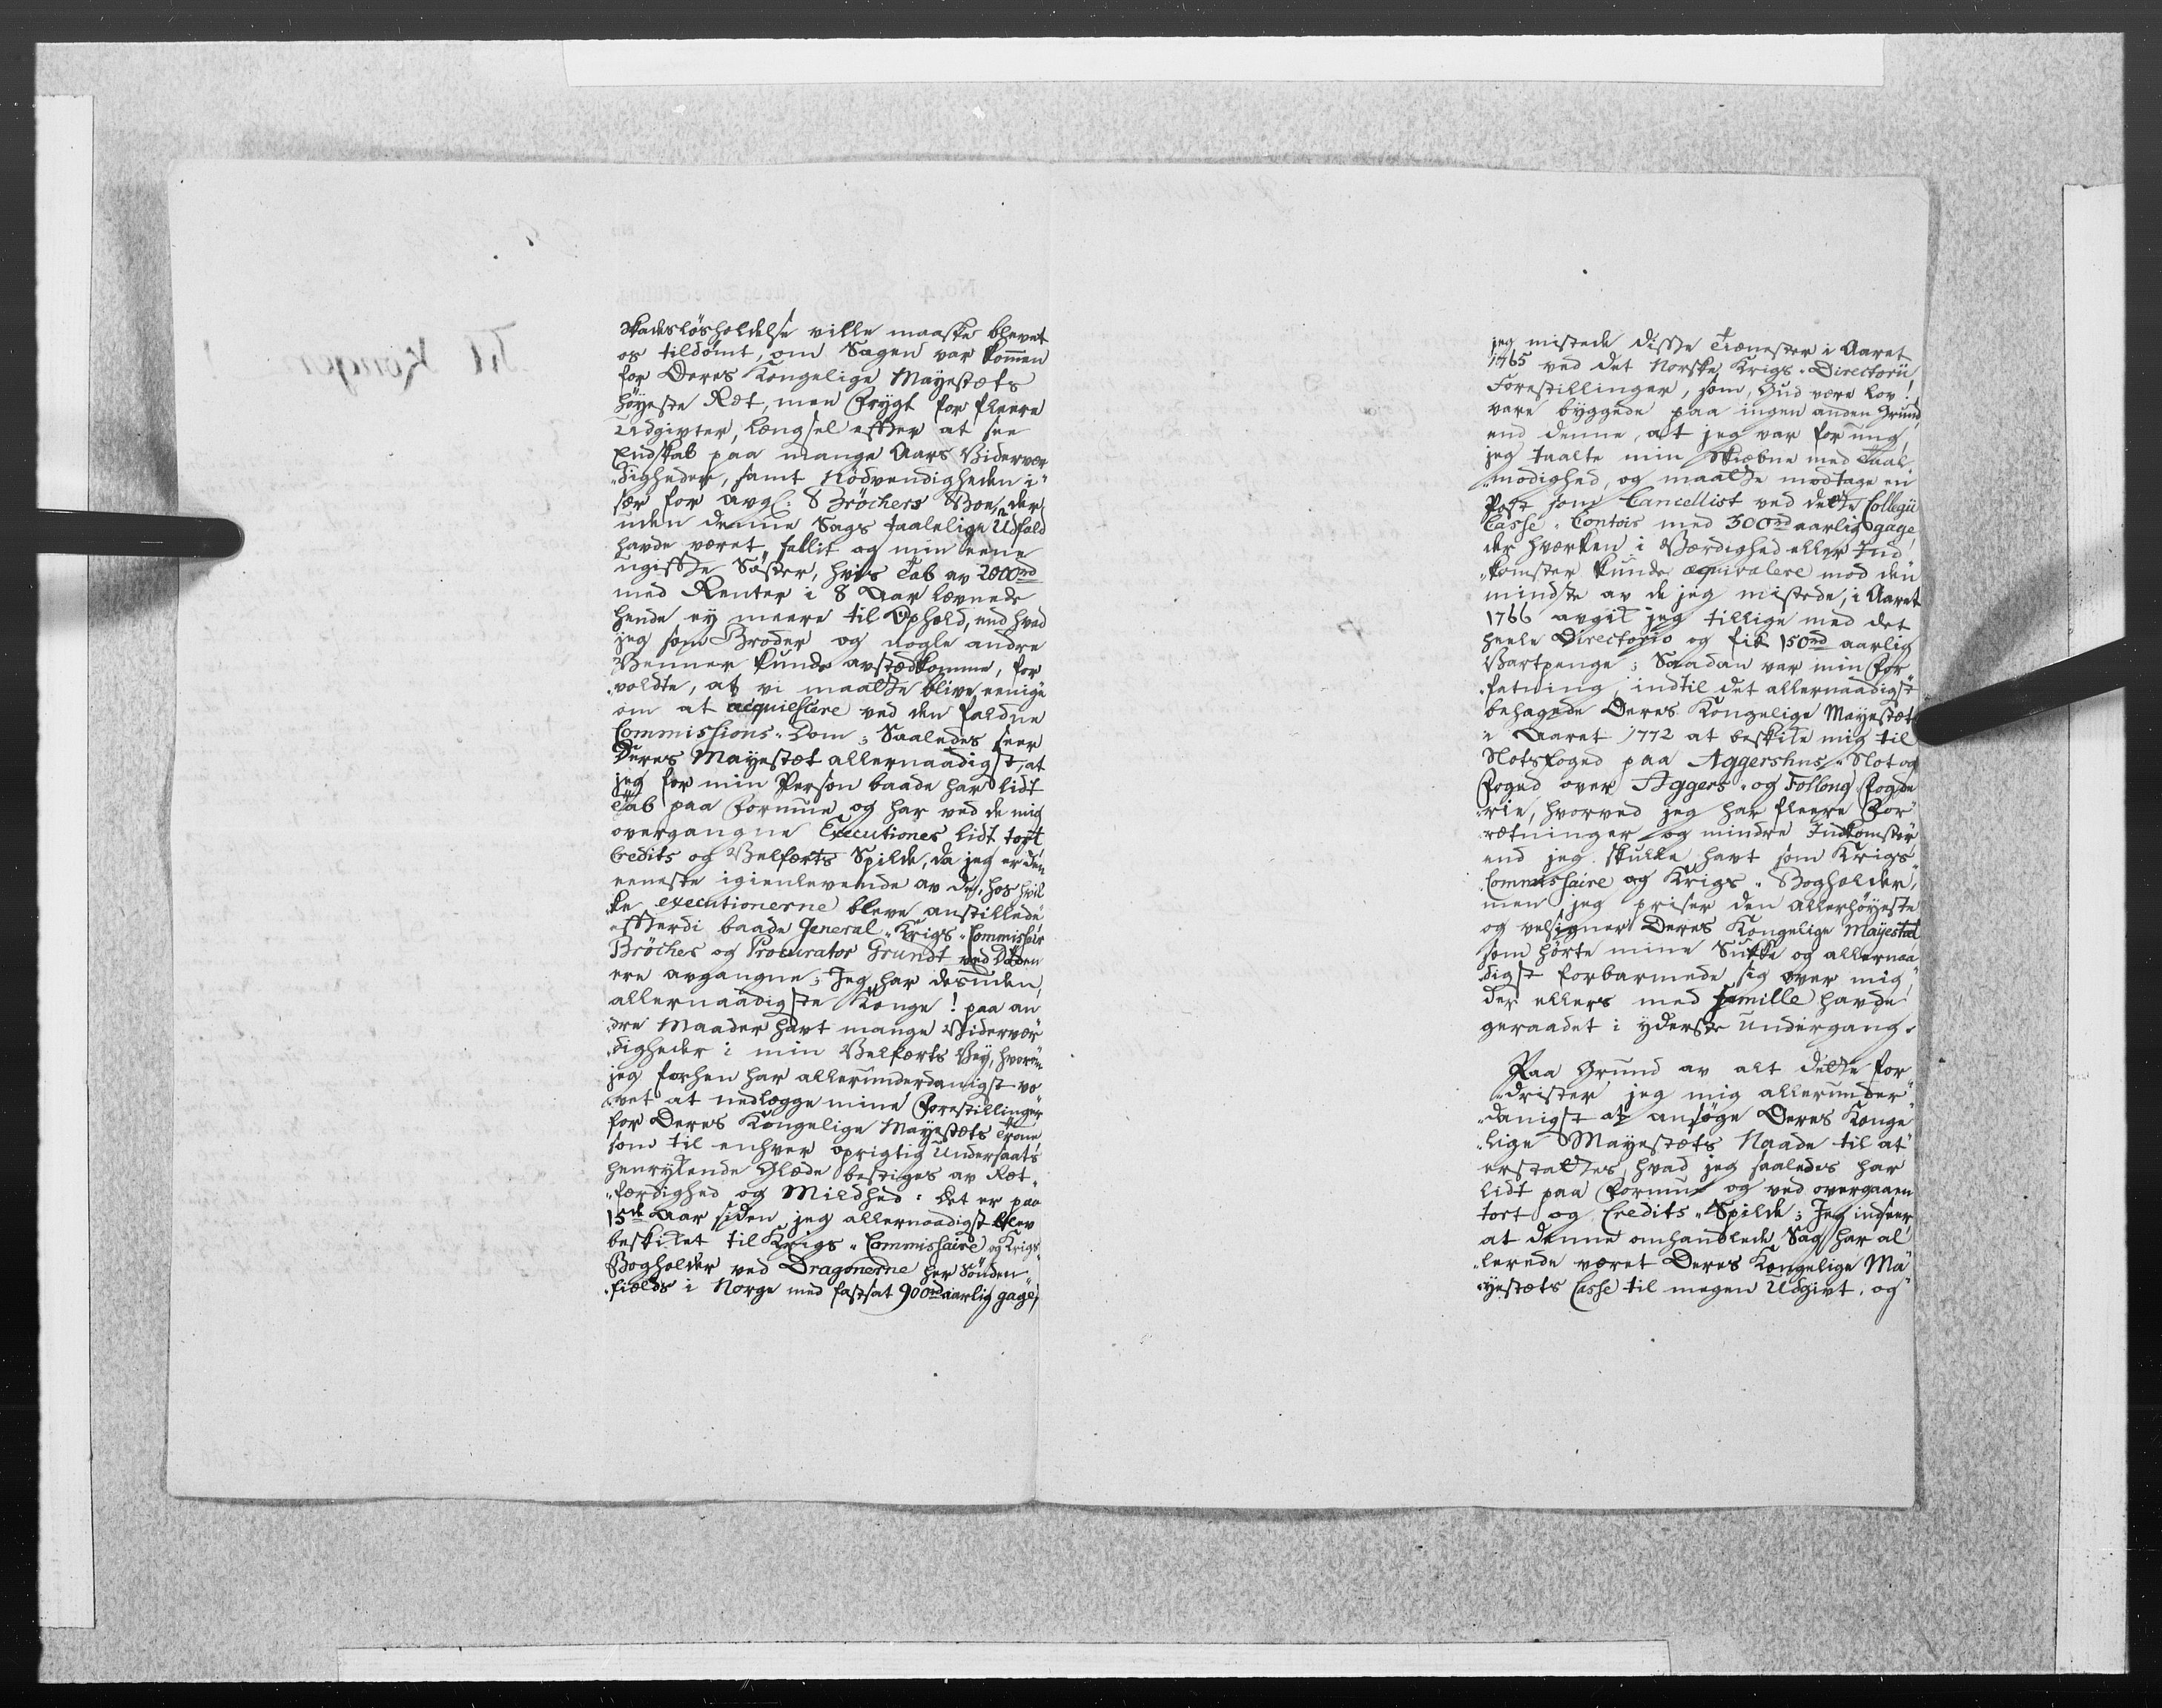 Skadesløsholdelse ville maaske blevet
os tildömt, om Sagen var kommen
for Deres Kongelige Mayestæts
höyeste Ret, men Frygt for fleere
Udgivter, længsel efter at see
Endskab paa mange Aars Viderver
digheder, samt Nödvendigheden i
sær for avg: Bröchers Boe, der
uden denne Sags taalelige Udfald
havde været fallit og min eene
ugifte Söster, hvis Tab av 2000rd
med Renter i 8 Aar levnede
hende ey meere til Ophold, end hvad
jeg som Broder og nogle andre
Venner kunde avstedkomme, for
voldte, at vi maatte blive eenige
om at acquiescere ved den faldne
Commissions-Dom; Saaledes seer
Deres Mayestæt allernaadigst, at
jeg for min Person baade har lidt
Tab paa Formue og har ved de mig
overgangne Executioner lidt tort
Credits og Velferts Spilde, da jeg er den
eeneste igienlevende av de, hos hvil
ke executionerne bleve anstillede
efterdi baade General-Krigs-Commissair
Bröcher og Procurator Grundt ved Döden
ere avgangne; Jeg har desuden,
allernaadigste Konge! paa an
dre Maader havt mange Vidervær
digheder i min Velferts Vey, hvorom
jeg forhen har allerunderdanigst vo
vet at nedlegge mine Forestillinger
for Deres Kongelige Mayestæts Trone
som til enhver oprigtig Undersaats
henrykende Glæde bestiges av Ret
færdighed og Mildhed: Det er paa
15de Aar siden jeg allernaadigst blev
beskiket til Krigs-Commissaire og Krigs
Bogholder ved Dragonerne her Sönden
fields i Norge med fastsat 900rd aarlig gage,
jeg mistede disse Tienester i Aaret
1765 ved det Norske Krigs-Directorii
Forestillinger, som, Gud være lov!
vare byggede paa ingen anden Grund,
end denne, at jeg var for ung,
jeg taalte min Skiæbne med Taal
modighed, og maatte modtage en
Post som Cancellist ved dette Collegii
Casse-Contoir med 300rd aarlig gage,
der hverken i Værdighed eller Ind
komster kunde æquivalere mod den
mindste av de jeg mistede, i Aaret
1766 avgik jeg tillige med det
heele Directorio og fik 150rd aarlig
Vartpenge; Saadan var min For
fatning, indtil det allernaadigst
behagede Deres Kongelige Mayestæt
i Aaret 1772 at beskike mig til
Slotsfoged paa Aggershus-Slot og
Foged over Aggers- og Follong Fogde
rie, hvorved jeg har fleere For
retninger og mindre Indkomster,
end jeg skulle havt som Krigs
Commissaire og Krigs-Bogholder,
men jeg priser den allerhöyeste
og velsigner Deres Kongelige Mayestæt
som hörte mine Sukke og allernaa
digst forbarmede sig over mig,
der ellers med famille havde
geraadet i yderste undergang.
Paa Grund av alt dette for
drister jeg mig allerunder
danigst at ansöge Deres Konge
lige Mayestæts Naade til at
erstattes, hvad jeg saaledes har
lidt paa Formue og ved overgaaen
tort og Credits-Spilde; Jeg indseer,
at denne omhandlede Sag har al
lerede været Deres Kongelige Ma
yestæts Casse til megen Udgivt, og